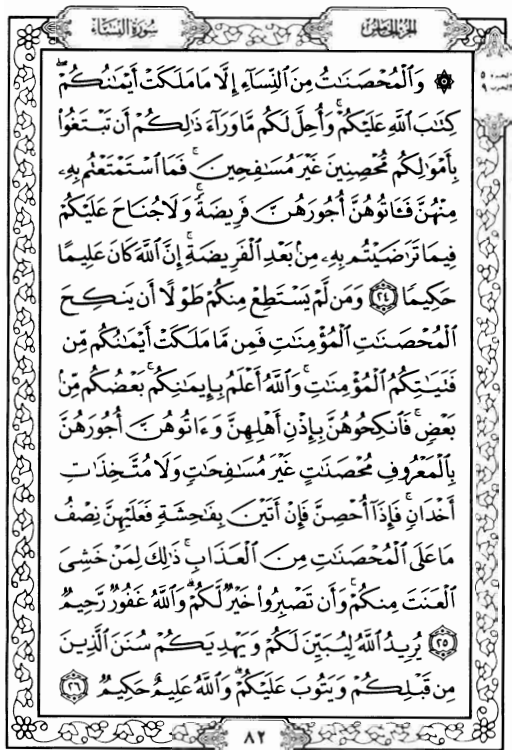 الجزء الخامس
سورة النساء
۞ وَٱلْمُحْصَنَٰتُ مِنَ ٱلنِّسَآءِ إِلَّا مَا مَلَكَتْ أَيْمَٰنُكُمْۖ
كِتَٰبَ ٱللَّهِ عَلَيْكُمْۚ وَأُحِلَّ لَكُم مَّا وَرَآءَ ذَٰلِكُمْ أَن تَبْتَغُوا۟
بِأَمْوَٰلِكُم مُّحْصِنِينَ غَيْرَ مُسَٰفِحِينَۚ فَمَا ٱسْتَمْتَعْتُم بِهِۦ
مِنْهُنَّ فَـَٔاتُوهُنَّ أُجُورَهُنَّ فَرِيضَةًۚ وَلَا جُنَاحَ عَلَيْكُمْ
فِيمَا تَرَٰضَيْتُم بِهِۦ مِنۢ بَعْدِ ٱلْفَرِيضَةِۚ إِنَّ ٱللَّهَ كَانَ عَلِيمًا
حَكِيمًا ٢٤ وَمَن لَّمْ يَسْتَطِعْ مِنكُمْ طَوْلًا أَن يَنكِحَ
ٱلْمُحْصَنَٰتِ ٱلْمُؤْمِنَٰتِ فَمِن مَّا مَلَكَتْ أَيْمَٰنُكُم مِّن
فَتَيَٰتِكُمُ ٱلْمُؤْمِنَٰتِۚ وَٱللَّهُ أَعْلَمُ بِإِيمَٰنِكُمۚ بَعْضُكُم مِّنۢ
بَعْضٍۚ فَٱنكِحُوهُنَّ بِإِذْنِ أَهْلِهِنَّ وَءَاتُوهُنَّ أُجُورَهُنَّ
بِٱلْمَعْرُوفِ مُحْصَنَٰتٍ غَيْرَ مُسَٰفِحَٰتٍ وَلَا مُتَّخِذَٰتِ
أَخْدَانٍۚ فَإِذَآ أُحْصِنَّ فَإِنْ أَتَيْنَ بِفَٰحِشَةٍ فَعَلَيْهِنَّ نِصْفُ
مَا عَلَى ٱلْمُحْصَنَٰتِ مِنَ ٱلْعَذَابِۚ ذَٰلِكَ لِمَنْ خَشِىَ
ٱلْعَنَتَ مِنكُمْۚ وَأَن تَصْبِرُوا۟ خَيْرٌ لَّكُمْۗ وَٱللَّهُ غَفُورٌ رَّحِيمٌ
٢٥ يُرِيدُ ٱللَّهُ لِيُبَيِّنَ لَكُمْ وَيَهْدِيَكُمْ سُنَنَ ٱلَّذِينَ
مِن قَبْلِكُمْ وَيَتُوبَ عَلَيْكُمْۗ وَٱللَّهُ عَلِيمٌ حَكِيمٌ ٢٦
٨٢